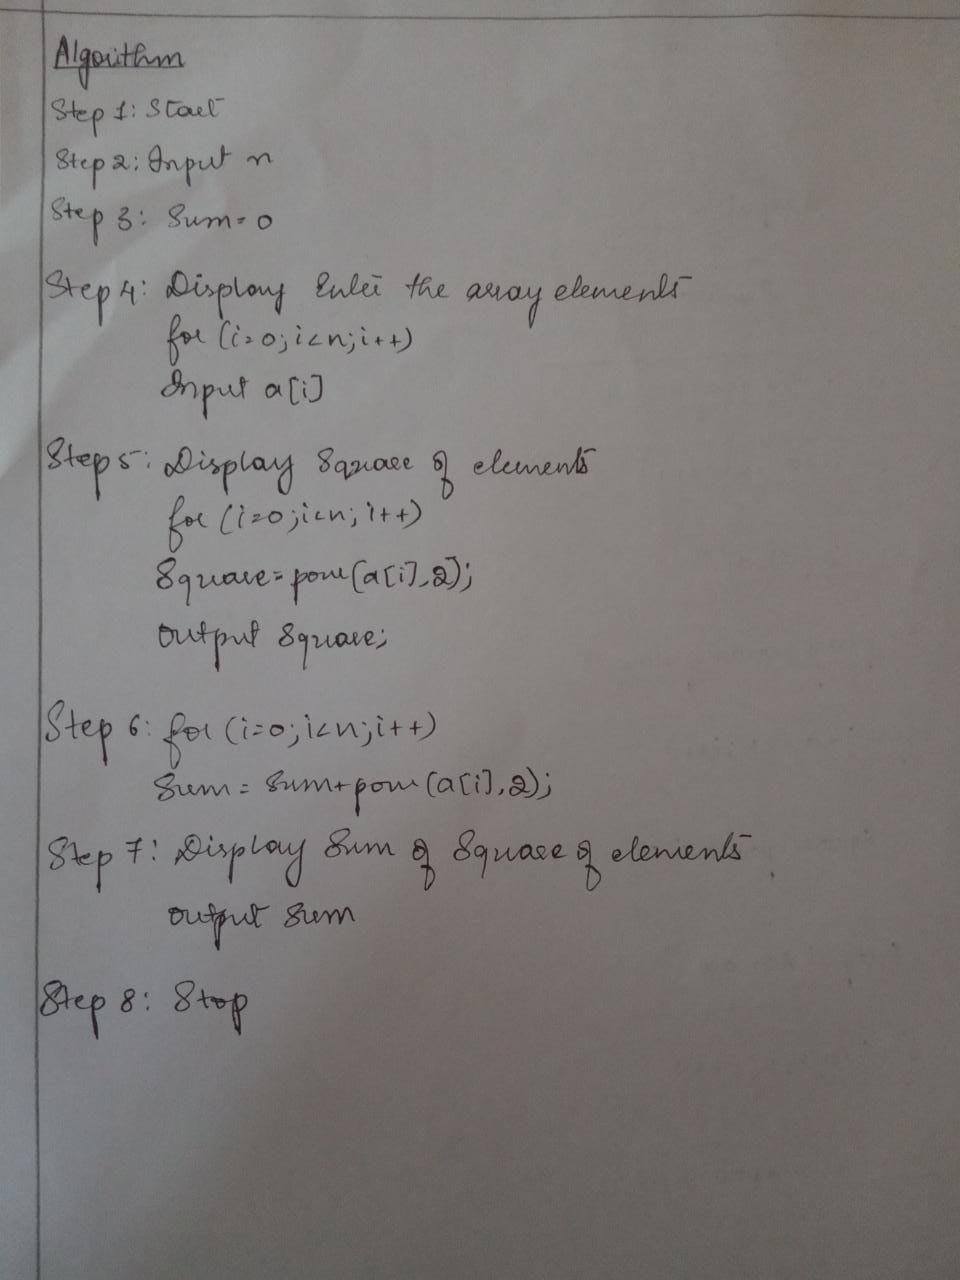 Algorithm
Step 1: Start
Step 2: Input n
Step 3: Sum=0
Step 4: Display Enter the array elements
for (i=0;i<n;i++)
Input a[i]
Step 5: Display Square of elements
for (i=0;i<n;i++)
Square=pow(a[i],2);
output Square;
Step 6: for (i=0;i<n;i++)
Sum = Sum+pow(a[i],2);
Step 7: Display Sum of Square of elements
output Sum
Step 8: Stop